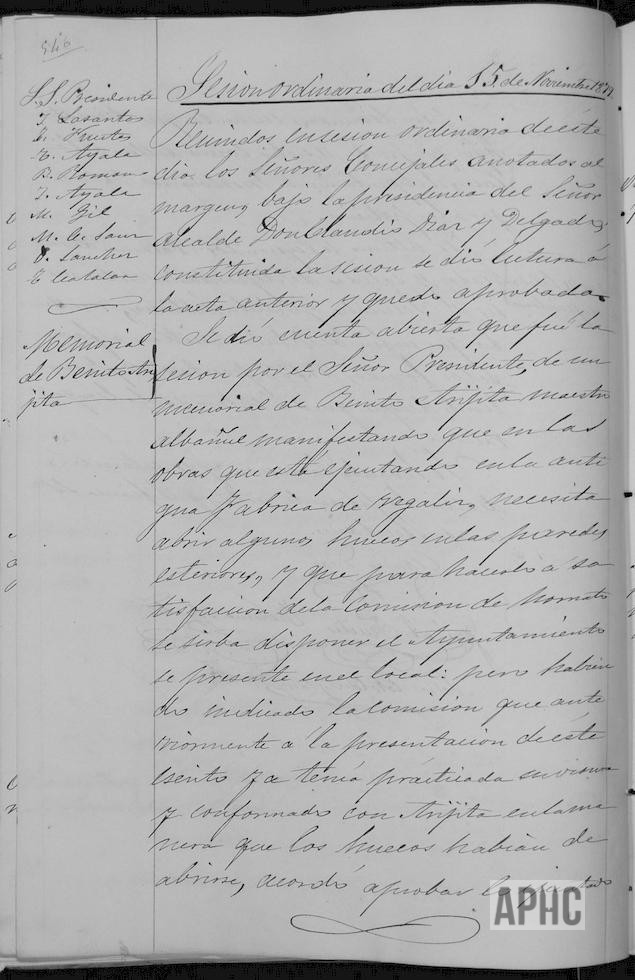 546
Sesion ordinaria del dia 15 de Noviembre 18
S. S. Presidente
Lasantos
Huertes
Ayala
Romano
Ayala
M. Gil
M. C. Sanz
Sancher
Catalan
Memorial
de Benito Ari
jita
Reunidos en sesion ordinaria de este
dia los Señores Concejales anotados al
margen, bajo la presidencia del Señor
Alcalde Don Claudio Diaz y Delgado,
constituida la sesion se dió lectura á
la acta anterior y quedó aprobada.
Se dió cuenta abierta que fué la
sesion por el Señor Presidente, de un
memorial de Benito Arijita maestro
albañil manifestando que en las
obras que está ejecutando en la anti
gua Fabrica de regaliz, necesita
abrir algunos huecos en las paredes
esteriores, y que para hacerlo á sa
tisfaccion de la Comision de hornato
se sirba disponer el Ayuntamiento
se presente en el local: pero habien
do indicado la comision que ante
riormente á la presentacion de éste
escrito ya tenia practicada su visura
y conformado con Arijita en la ma
nera que los huecos habian de
abrirse, acordó aprobar lo ejecutado
APHC